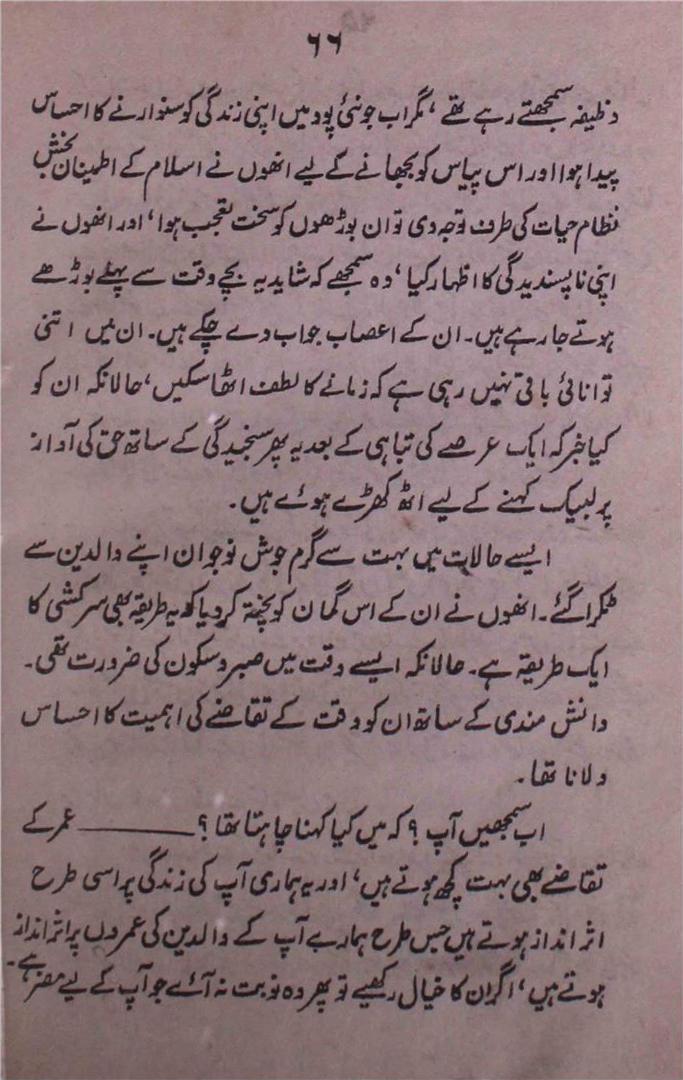 ۶۶
وظیفہ سمجھتے رہے تھے، مگر اب جو نئی پود میں اپنی زندگی کو سنوارنے کا احساس
پیدا ہوا اور اس پیاس کو بجھانے کے لیے انھوں نے اسلام کے اطمینان بخش
نظام حیات کی طرف توجہ دی تو ان بوڑھوں کو سخت تعجب ہوا، اور انھوں نے
اپنی ناپسندیدگی کا اظہار کیا، وہ سمجھے کہ شاید یہ بچے وقت سے پہلے بوڑھے
ہوتے جا رہے ہیں۔ ان کے اعصاب جواب دے چکے ہیں۔ ان میں اتنی
توانائی باقی نہیں رہی ہے کہ زمانے کا لطف اٹھا سکیں، حالانکہ ان کو
کیا خبر کہ ایک عرصے کی تباہی کے بعد یہ پھر سنجیدگی کے ساتھ حق کی آواز
پر لبیک کہنے کے لیے اٹھ کھڑے ہوئے ہیں۔
ایسے حالات میں بہت سے گرم جوش نوجوان اپنے والدین سے
ٹکرا گئے۔ انھوں نے ان کے اس گمان کو پختہ کر دیا کہ یہ طریقہ بھی سرکشی کا
ایک طریقہ ہے۔ حالانکہ ایسے وقت میں صبر و سکون کی ضرورت تھی۔
دانش مندی کے ساتھ ان کو وقت کے تقاضے کی اہمیت کا احساس
دلانا تھا۔
اب سمجھیں آپ؟ کہ میں کیا کہنا چاہتا تھا؟ ——— عمر کے
تقاضے بھی بہت کچھ ہوتے ہیں، اور یہ ہماری آپ کی زندگی پر اسی طرح
اثر انداز ہوتے ہیں جس طرح ہمارے آپ کے والدین کی عمروں پر اثر انداز
ہوتے ہیں، اگر ان کا خیال رکھیے تو پھر وہ نوبت نہ آئے جو آپ کے لیے مضر ہے۔